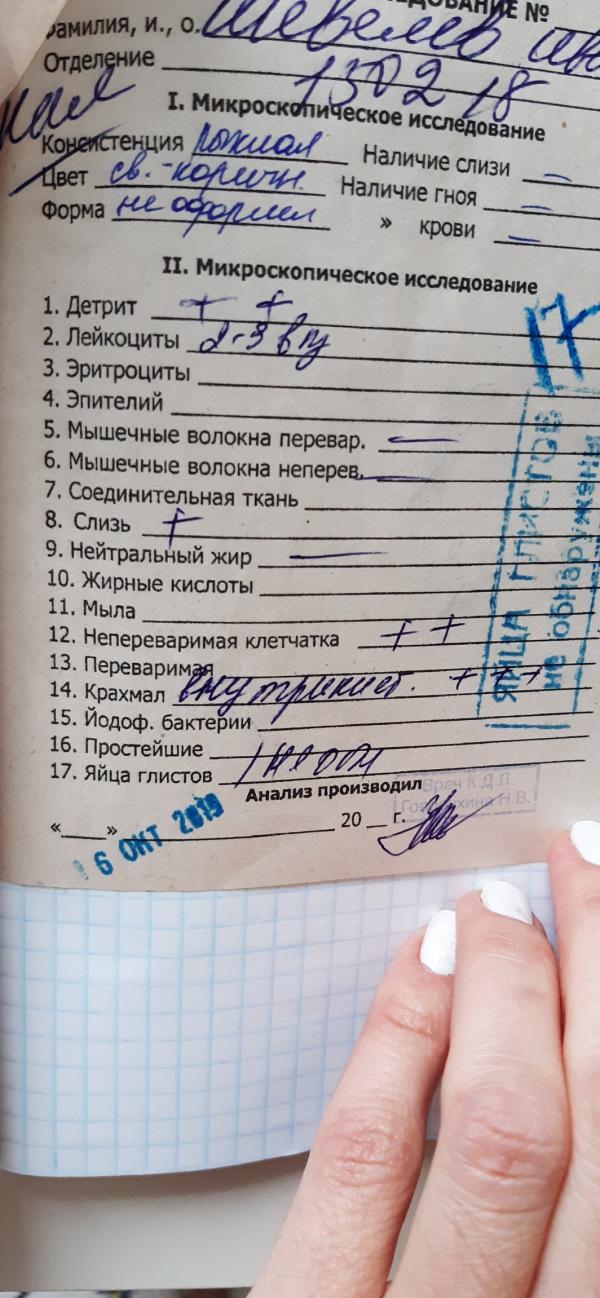 ЕДОВАНИЕ №
амилия, и., о. Шевелев Ива
Отделение
130218
кал
I. Микроскопическое исследование
Консистенция рыхлая Наличие слизи —
Цвет св.-коричн. Наличие гноя —
Форма не оформлен » крови —
II. Микроскопическое исследование
1. Детрит + +
2. Лейкоциты 2-3 в п/з
3. Эритроциты
4. Эпителий
5. Мышечные волокна перевар. —
6. Мышечные волокна неперев. —
7. Соединительная ткань
8. Слизь +
9. Нейтральный жир —
10. Жирные кислоты
11. Мыла
12. Непереваримая клетчатка + +
13. Переваримая
14. Крахмал внутриклет. + + +
15. Йодоф. бактерии
16. Простейшие
17. Яйца глистов
17
ЯЙЦА ГЛИСТОВ
не обнаружены
Анализ производил
Врач К.Д.Л.
Н.В.
«__» 20 __ г.
6 ОКТ 2019